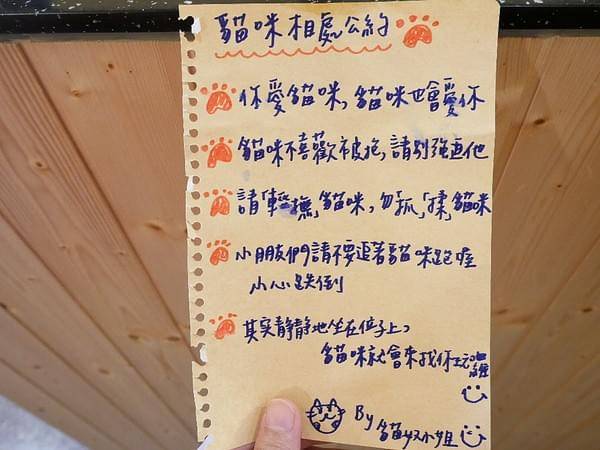 貓咪相處公約
你愛貓咪,貓咪也會愛你
貓咪不喜歡被抱,請別強迫他
請「輕撫」貓咪,勿「抓」「揉」貓咪
小朋友們請不要追著貓咪跑喔
小心跌倒
其實靜靜地坐在位子上,
貓咪就會來找你玩囉
By 貓奴小姐